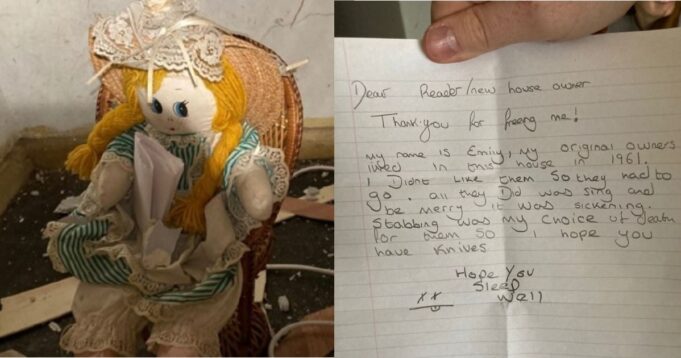 Dear Reader/new house owner
Thankyou for freeing me!
my name is Emily, my original owners
lived in this house in 1961.
I Didnt Like them so they had to
go. all they Did was sing and
be merry. it was sickening.
Stabbing was my choice of death
for them so I hope you
have Knives
Hope You
Sleep
Well
xx